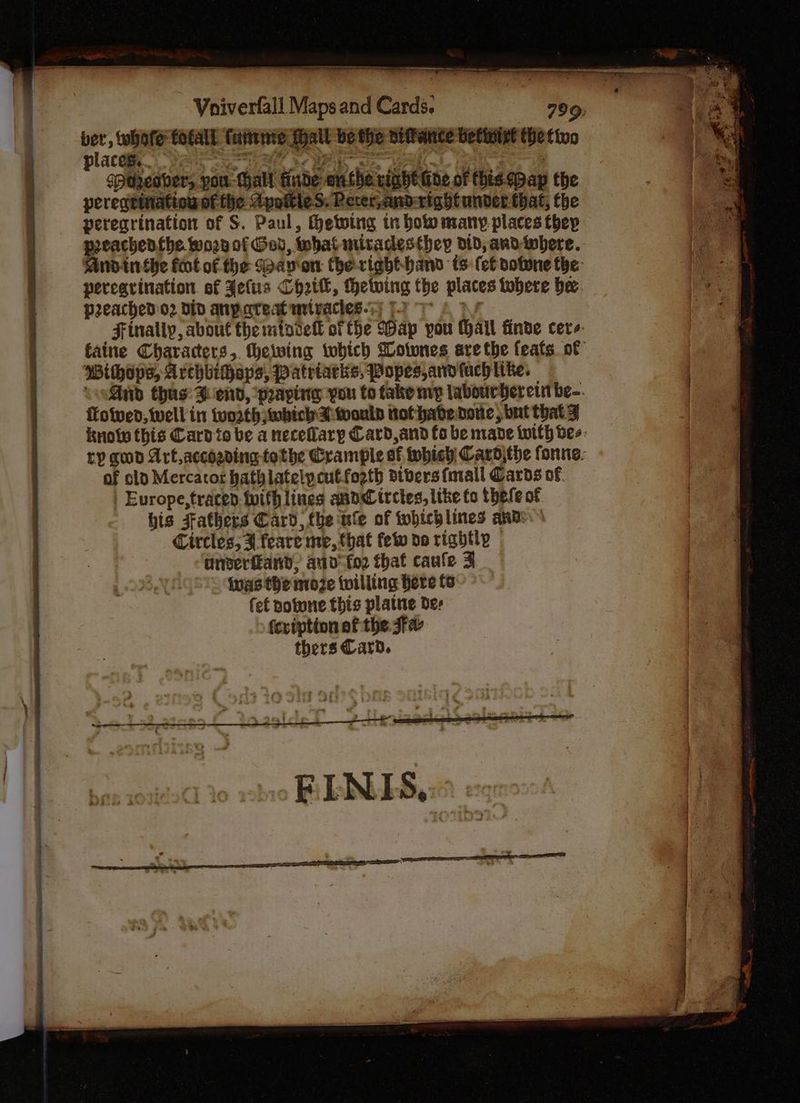 Vniuerſall Maps and Cards. 799
ber, whoſe totall ſumme ſhall be the diſtance betwixt the two
places.
Moreover, you ſhall finde on the right ſide of this Map the
peregrination of the Apoſtle S. Peter, and right under that, the
peregrination of S. Paul, ſhewing in how many places they
preached the word of God, what miracles they did, and where.
And in the foot of the Map on the right hand is ſet downe the
peregrination of Jeſus Chriſt, ſhewing the places where hee
preached or did any great miracles.
Finally, about the middeſt of the Map you ſhall finde cer-
taine Characters, ſhewing which Townes are the ſeats of
Biſhops, Archbiſhops, Patriarks, Popes, and ſuch like.
And thus I end, praying you to take my labour herein be-
ſtowed, well in worth, which I would not have done, but that I
know this Card to be a neceſſary Card, and to be made with ve-
ry good Art, according to the Example of which Card, the ſonne
of old Mercator hath lately cut forth divers ſmall Cards of
Europe, traced with lines and Circles, like to theſe of
his Fathers Card, the uſe of which lines and
Circles, I feare me, that few do rightly
underſtand, and for that cauſe I
was the more willing here to
ſet downe this plaine de-
ſcription of the Fa-
thers Card.
FINIS.